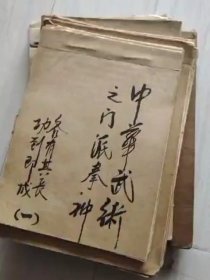 中華武術
之門派拳掷
各有其長
功到即成
(一)